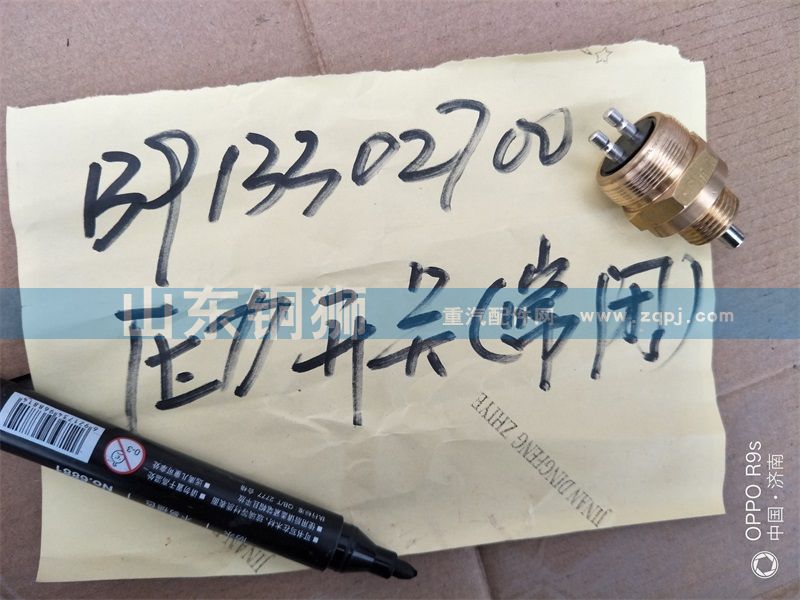 BP13302700
压力开关(常闭)
山东铜狮
重汽配件网 www.zqpj.com
JINAN DINGFENG ZHIYE
No.6881
0-3
OPPO R9s
中国·济南